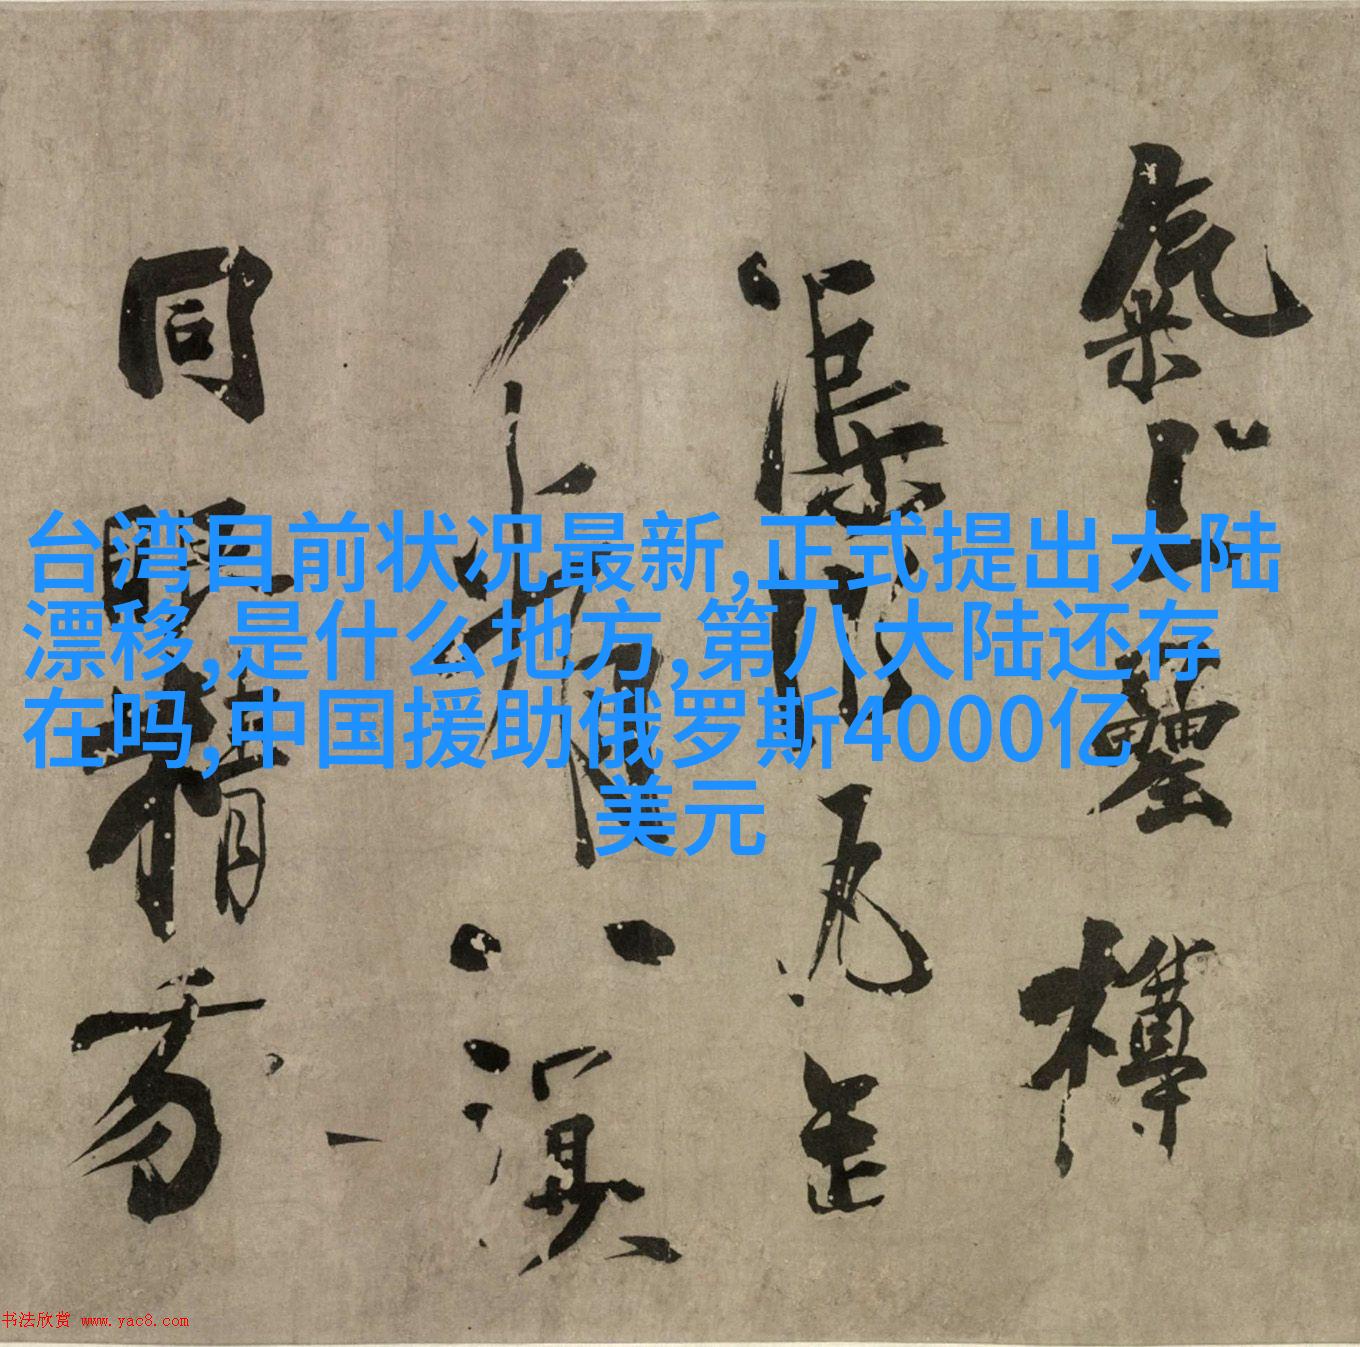 台湾目前状况最新,正式提出大陆
漂移,是什么地方,第八大陆还存
在吗,中国援助俄罗斯4000亿
美元
氣上樽
渠
八溟
同精
书法欣赏 www.yac8.com